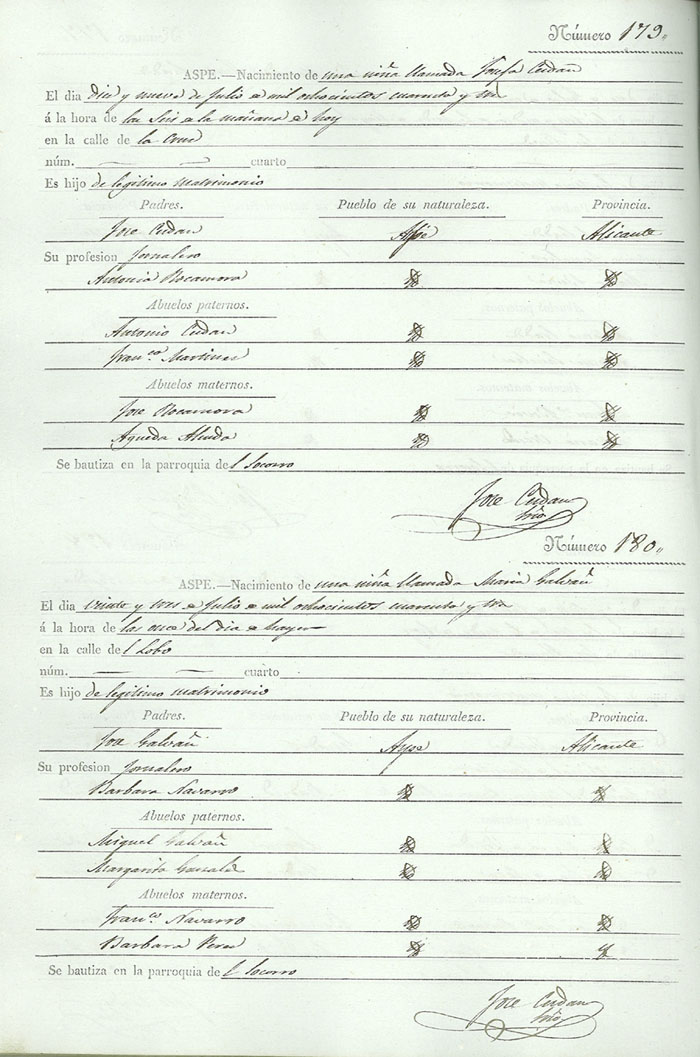 Número 179.
ASPE.—Nacimiento de una niña llamada Josefa Cerdan
El dia diez y nueve de Julio de mil ochocientos cuarenta y tres
á la hora de las Seis de la mañana de hoy
en la calle de la Cruz
núm. cuarto
Es hijo de legitimo Matrimonio
Padres. Pueblo de su naturaleza. Provincia.
Jose Cerdan Aspe Alicante
Su profesion Jornalero
Antonia Rocamora
Abuelos paternos.
Antonio Cerdan
Fran.ca Martinez
Abuelos maternos.
Jose Rocamora
Agueda
Se bautiza en la parroquia del Socorro
Jose Cerdan
Srio
Número 180.
ASPE.—Nacimiento de una niña llamada Maria Galvañ
El dia veinte y tres de Julio de mil ochocientos cuarenta y tres
á la hora de las once del dia de hayer
en la calle del Lobo
núm. cuarto
Es hijo de legitimo Matrimonio
Padres. Pueblo de su naturaleza. Provincia.
Jose Galvañ Aspe Alicante
Su profesion Jornalero
Barbara Navarro
Abuelos paternos.
Miguel Galvañ
Margarita
Abuelos maternos.
Fran.co Navarro
Barbara Perez
Se bautiza en la parroquia del Socorro
Jose Cerdan
Srio